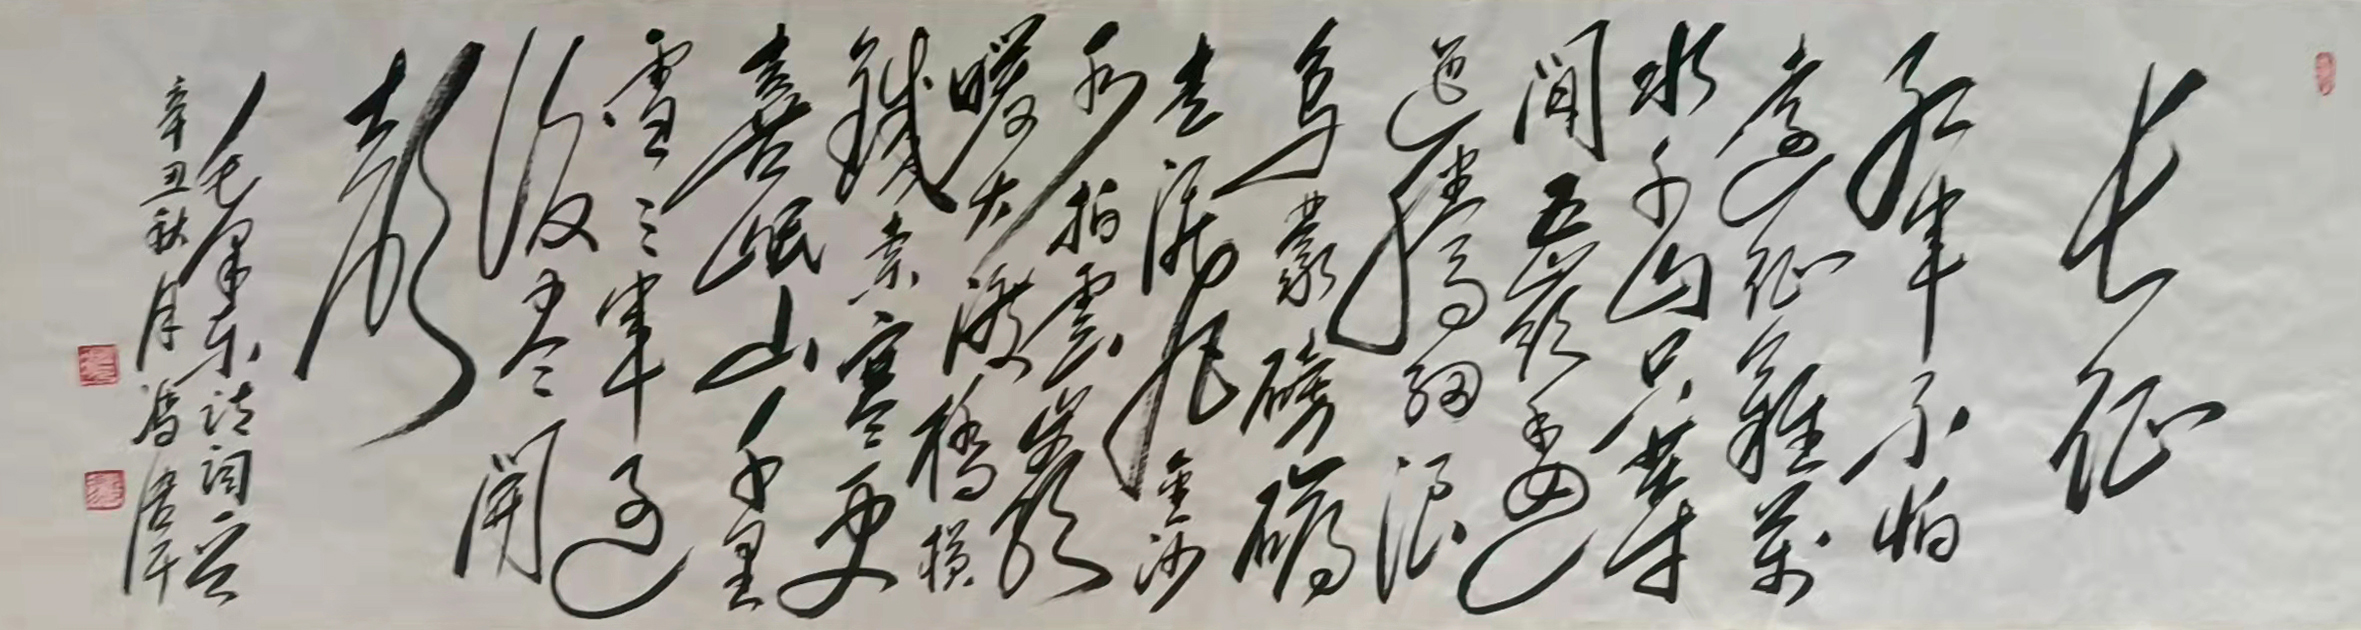 长征
红军不怕
遠征難萬
水千山只等
闲五岭逶
迤騰细浪
乌蒙磅礴
走泥丸金沙
水拍雲崖
暖大渡橋横
鐵索寒更
喜岷山千里
雪三军过
后尽開
颜
毛澤东诗词一首
辛丑秋月冯